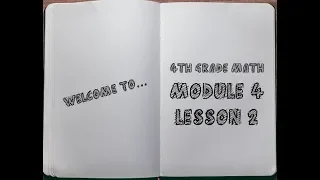 WELCOME TO...
4TH GRADE MATH
MODULE 4
LESSON 2